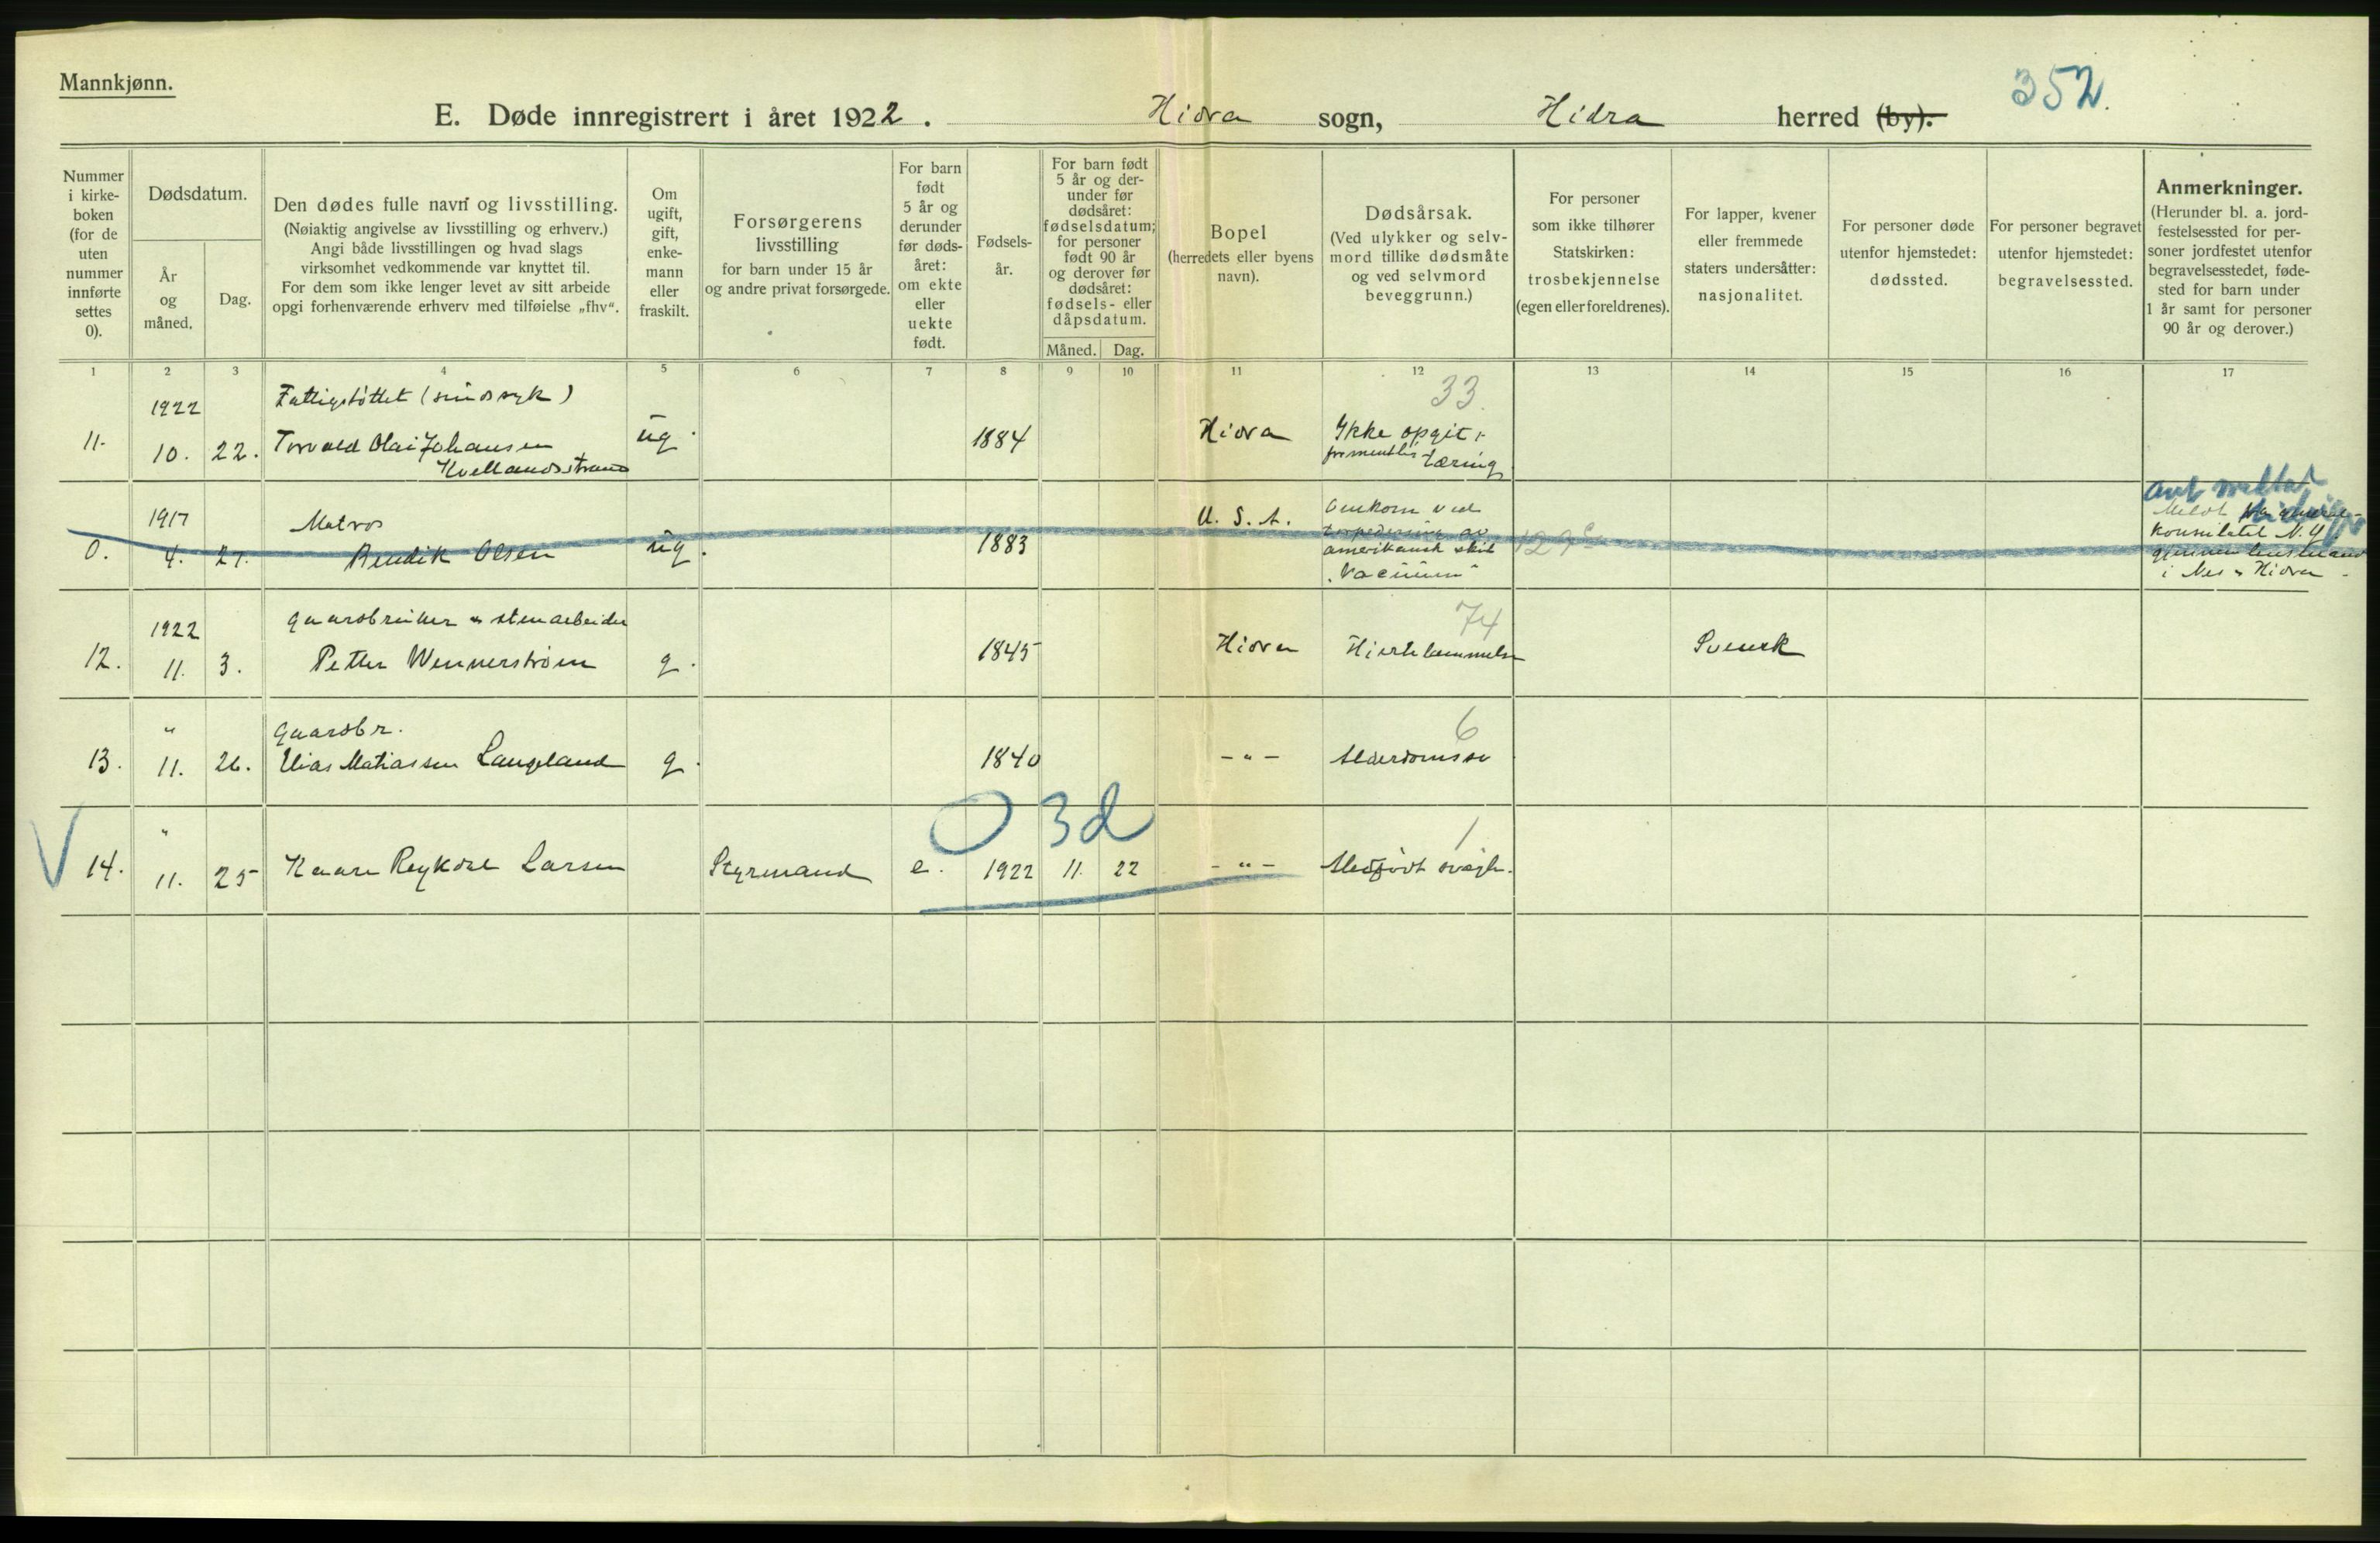 Mannkjønn.
352.
E. Døde innregistrert i året 1922. Hidra sogn, Hidra herred (by).
Nummer
i kirke-
boken
(for de
uten
nummer
innførte
settes
0).
Dødsdatum.
År
og
måned.
Dag.
Den dødes fulle navn og livsstilling.
(Nøiaktig angivelse av livsstilling og erhverv.)
Angi både livsstillingen og hvad slags
virksomhet vedkommende var knyttet til.
For dem som ikke lenger levet av sitt arbeide
opgi forhenværende erhverv med tilføielse „fhv“.
Om
ugift,
gift,
enke-
mann
eller
fraskilt.
Forsørgerens
livsstilling
for barn under 15 år
og andre privat forsørgede.
For barn
født
5 år og
derunder
før døds-
året:
om ekte
eller
uekte
født.
Fødsels-
år.
For barn født
5 år og der-
under før
dødsåret:
fødselsdatum;
for personer
født 90 år
og derover før
dødsåret:
fødsels- eller
dåpsdatum.
Måned. Dag.
Bopel
(herredets eller byens
navn).
Dødsårsak.
(Ved ulykker og selv-
mord tillike dødsmåte
og ved selvmord
beveggrunn.)
For personer
som ikke tilhører
Statskirken:
trosbekjennelse
(egen eller foreldrenes).
For lapper, kvener
eller fremmede
staters undersåtter:
nasjonalitet.
For personer døde
utenfor hjemstedet:
dødssted.
For personer begravet
utenfor hjemstedet:
begravelsessted.
Anmerkninger.
(Herunder bl. a. jord-
festelsessted for per-
soner jordfestet utenfor
begravelsesstedet, føde-
sted for barn under
1 år samt for personer
90 år og derover.)
1 2 3 4 5 6 7 8 9 10 11 12 13 14 15 16 17
1922 Fattigstøttet (sindssyk) 33
11. 10. 22. Torvald Olai Johansen ug. 1884 Hidra Ikke opgit,
Kvellandsstrand tæring
1917 Matros U. S. A. Omkom ved
0. 4. 27. Bendik Olsen ug. 1883 torpedering av
amerikansk skib 129c
"Vacuum"
Meldt
konsulatet N.Y.
gjennem lensmand
i Nes & Hidra
1922 Gaardbruker & stenarbeider 74
12. 11. 3. Petter Wennerstrøm g. 1845 Hidra Hjertelammelse Svensk
" Gaardbr. 6
13. 11. 26. Elias Matiassen Langeland g. 1840 -"- Alderdomssv
O 3d
V " 1
14. 11. 25 Kaare Reykdal Larsen Styrmand e. 1922 11. 22 -"- Medfødt svagh.